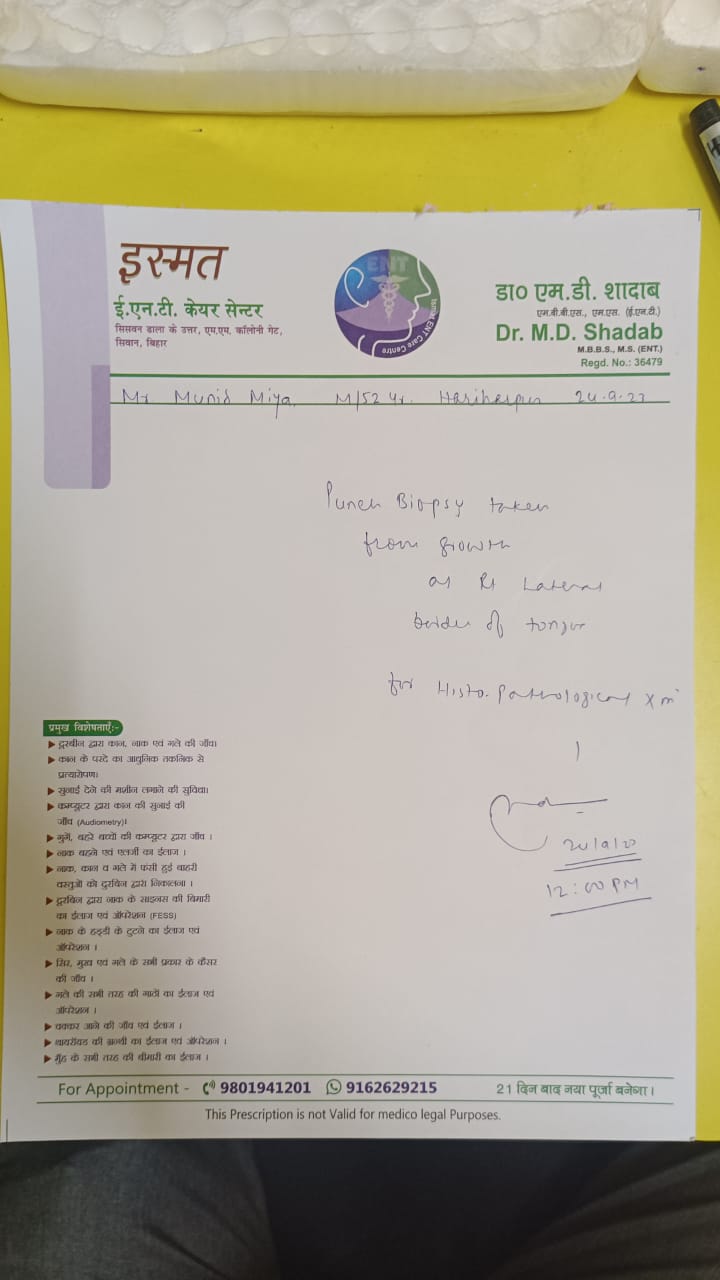 इस्मत
ई.एन.टी. केयर सेन्टर
सिसवन डाला के उत्तर, एम.एम. कॉलोनी गेट,
सिवान, बिहार
ENT
Ismat ENT Care Centre
डा० एम.डी. शादाब
एम.बी.बी.एस., एम.एस. (ई.एन.टी.)
Dr. M.D. Shadab
M.B.B.S., M.S. (ENT.)
Regd. No.: 36479
Mr Munid Miya M/52 yr. Hariharpur
Punch Biopsy taken
from growth
Rt Lateral
border of tongue
for Histo. Pathological Xm
12:00 PM
प्रमुख विशेषताएँ:-
दूरबीन द्वारा कान, नाक एवं गले की जाँच।
कान के परदे का आधुनिक तकनिक से
प्रत्यारोपण।
सुनाई देने की मशीन लगाने की सुविधा।
कम्प्यूटर द्वारा कान की सुनाई की
जाँच (Audiometry)।
गुगें, बहरे बच्चों की कम्प्यूटर द्वारा जाँच ।
नाक बहने एवं एलर्जी का ईलाज ।
नाक, कान व गले में फंसी हुई बाहरी
वस्तुओं को दुरबिन द्वारा निकालना ।
दूरबिन द्वारा नाक के साइनस की बिमारी
का ईलाज एवं ऑपरेशन (FESS)
नाक के हड्डी के टुटने का ईलाज एवं
ऑपरेशन ।
सिर, मुख एवं गले के सभी प्रकार के कैंसर
की जाँच ।
गले की सभी तरह की गाठों का ईलाज एवं
ऑपरेशन ।
चक्कर आने की जाँच एवं ईलाज ।
थायरॉयड की ग्रन्थी का ईलाज एवं ऑपरेशन ।
मुँह के सभी तरह की बीमारी का ईलाज ।
For Appointment - 9801941201 9162629215
21 दिन बाद नया पूर्जा बनेगा।
This Prescription is not Valid for medico legal Purposes.